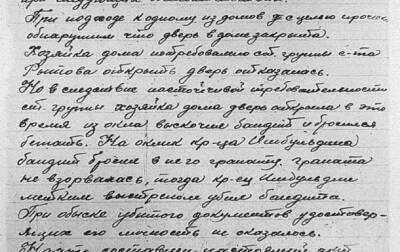 При подходе к одному из домов с целью прочес
обнаружили что дверь в доме закрыта.
Хозяйка дома по требованию ст. группы с-та
Рытова открыть дверь отказалась.
Но в следствие настойчивой требовательности
ст. группы хозяйка дома дверь открыла в это
время из окна выскочил бандит и бросился
бежать. На оклик кр-ца
бандит бросил в него гранату. граната
не взорвалась, тогда кр-ец
метким выстрелом убил бандита.
При обыске убитого документов удостовер-
яющих его личность не оказалось.